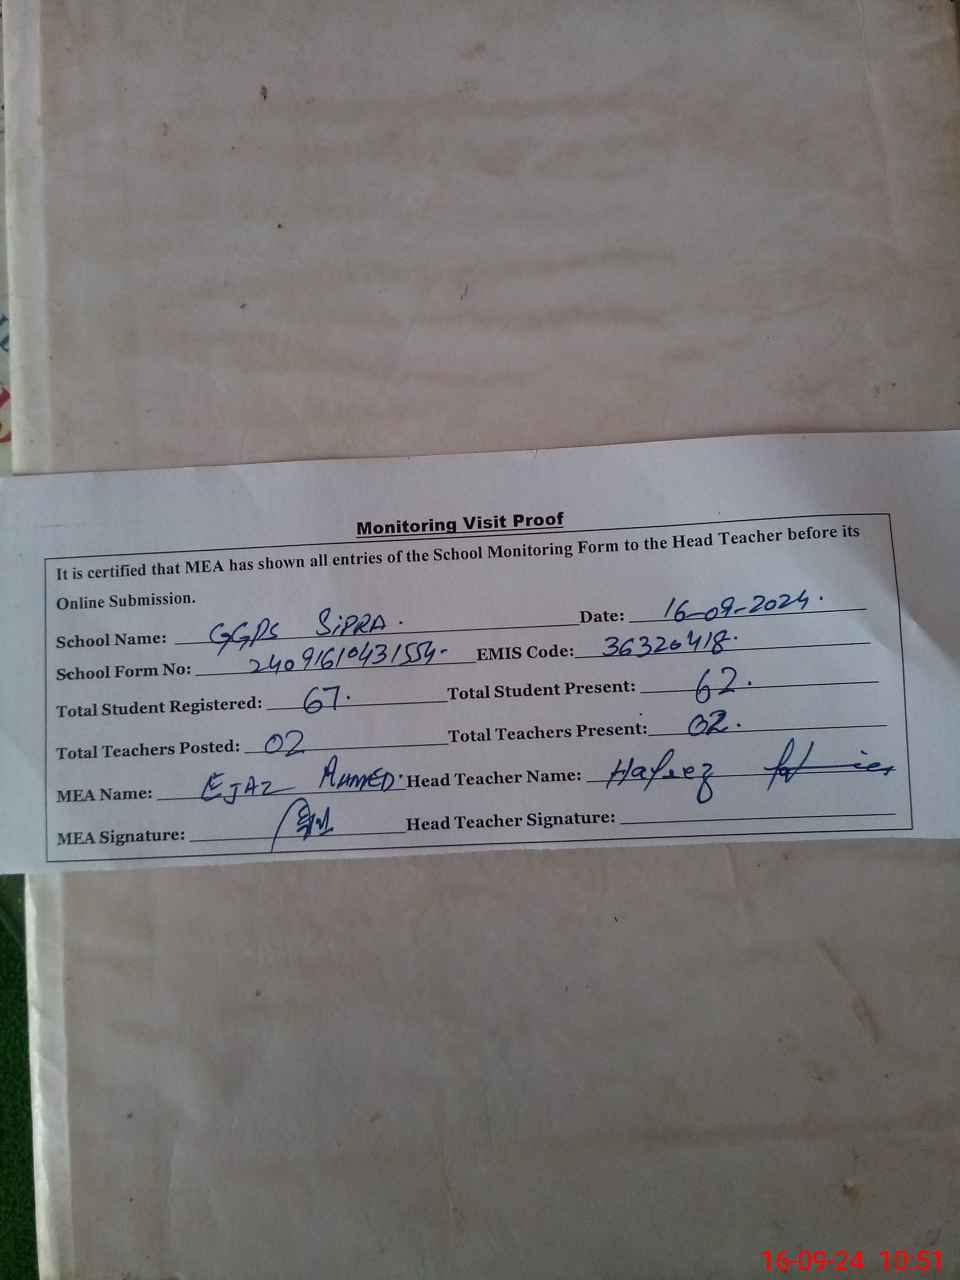 Monitoring Visit Proof
It is certified that MEA has shown all entries of the School Monitoring Form to the Head Teacher before its
Online Submission.
School Name: GGPS SiPRA. Date: 16-09-2024.
School Form No: 24091610431554- EMIS Code: 36320418.
Total Student Registered: 67. Total Student Present: 62.
Total Teachers Posted: 02 Total Teachers Present: 02.
MEA Name: EJAZ AHMED. Head Teacher Name: Hafeez
MEA Signature: Head Teacher Signature:
16-09-24 10:51